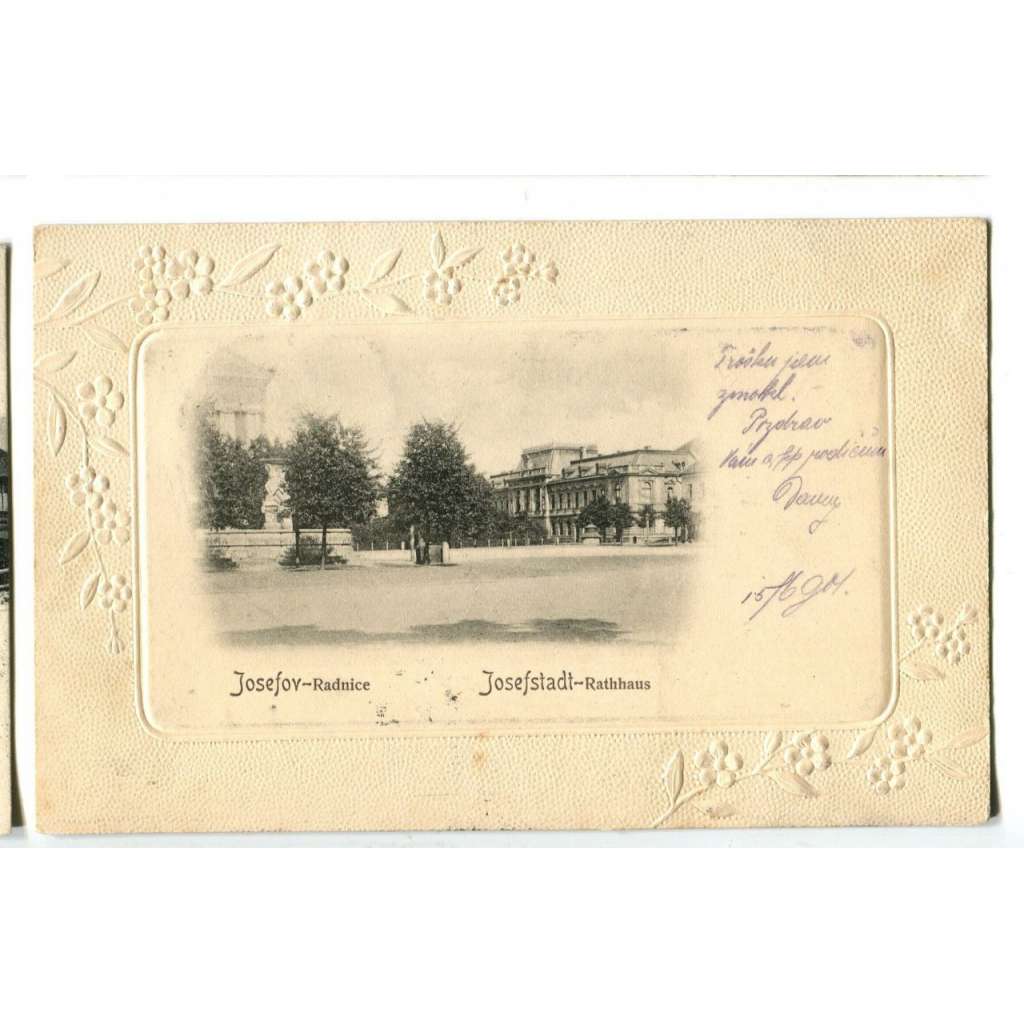 Trošku jsem
zmokl.
Pozdrav
Vám a pp rodičům
15/6 901.
Josefov-Radnice
Josefstadt-Rathhaus